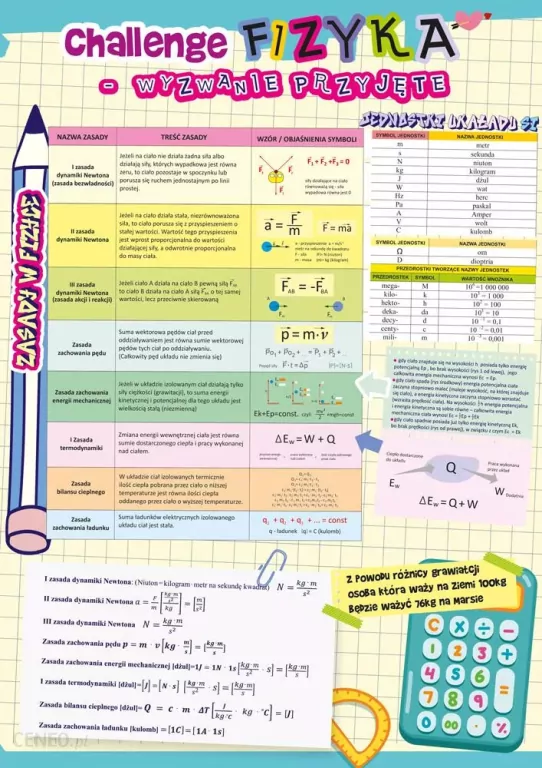 Challenge FIZYKA
- WYZWANIE PRZYJĘTE
JEDNOSTKI UKŁADU SI
ZASADY W FIZYCE
NAZWA ZASADY TREŚĆ ZASADY WZÓR / OBJAŚNIENIA SYMBOLI
I zasada
dynamiki Newtona
(zasada bezwładności)
Jeżeli na ciało nie działa żadna siła albo
działają siły, których wypadkowa jest równa
zeru, to ciało pozostaje w spoczynku lub
porusza się ruchem jednostajnym po linii
prostej.
F₁ + F₂ + F₃ = 0
siły działające na ciało
równoważą się - siła
wypadkowa równa jest 0
II zasada
dynamiki Newtona
Jeżeli na ciało działa stała, niezrównoważona
siła, to ciało porusza się z przyspieszeniem o
stałej wartości. Wartość tego przyspieszenia
jest wprost proporcjonalna do wartości
działającej siły, a odwrotnie proporcjonalna
do masy ciała.
a = F/m F = ma
III zasada
dynamiki Newtona
(zasada akcji i reakcji)
Jeżeli ciało A działa na ciało B pewną siłą F_AB
to ciało B działa na ciało A siłą F_BA o tej samej
wartości, lecz przeciwnie skierowaną
F_AB = -F_BA
Zasada
zachowania pędu
Suma wektorowa pędów ciał przed
oddziaływaniem jest równa sumie wektorowej
pędów tych ciał po oddziaływaniu.
(Całkowity pęd układu nie zmienia się)
p = m·v
F·t = Δp
Zasada
zachowania energii
mechanicznej
Jeżeli w układzie izolowanym ciał działają tylko
siły ciężkości (grawitacji), to suma energii
kinetycznej i potencjalnej dla tego układu jest
wielkością stałą (niezmienną)
Ek+Ep=const.
I Zasada
termodynamiki
Zmiana energii wewnętrznej ciała jest równa
sumie dostarczonego ciepła i pracy wykonanej
nad ciałem.
ΔE_w = W + Q
Zasada
bilansu cieplnego
W układzie ciał izolowanych termicznie
ilość ciepła pobrana przez ciało o niższej
temperaturze jest równa ilości ciepła
oddanego przez ciało o wyższej temperaturze.
Zasada
zachowania ładunku
Suma ładunków elektrycznych izolowanego
układu ciał jest stała.
q₁ + q₂ + q₃ + ... = const
q - ładunek |q| = C (kulomb)
SYMBOL JEDNOSTKI NAZWA JEDNOSTKI
m metr
s sekunda
N niuton
kg kilogram
J dżul
W wat
Hz herc
Pa paskal
A Amper
V wolt
C kulomb
SYMBOL JEDNOSTKI NAZWA JEDNOSTKI
Ω om
D dioptria
PRZEDROSTKI TWORZĄCE NAZWY JEDNOSTEK
PRZEDROSTEK SYMBOL WARTOŚĆ MNOŻNIKA
mega- M 10⁶ =1 000 000
kilo- k 10³ = 1 000
hekto- h 10² = 100
deka- da 10¹ = 10
decy- d 10⁻¹ = 0,1
centy- c 10⁻² = 0,01
mili- m 10⁻³ = 0,001
Ciepło dostarczone
do układu
Q
Praca wykonana
przez układ
E_w
W
ΔE_w = Q + W
I zasada dynamiki Newtona: (Niuton=kilogram·metr na sekundę kwadrat) N = kg·m/s²
II zasada dynamiki Newtona a = F/m [kg·m/s² / kg] = [m/s²]
III zasada dynamiki Newtona N = kg·m/s²
Zasada zachowania pędu p = m · v [kg · m/s] = [kg·m/s]
Zasada zachowania energii mechanicznej [dżul]=1J = 1N · 1s [kg·m/s² · s] = [kg·m/s]
I zasada termodynamiki [dżul]=[J] = [N · s] [kg·m/s² · s] = [kg·m/s]
Zasada bilansu cieplnego [dżul]= Q = c · m · ΔT [J/kg·°C · kg · °C] = [J]
Zasada zachowania ładunku [kulomb] = [1C] = [1A · 1s]
Z powodu różnicy grawiatcji
osoba która waży na Ziemi 100kg
będzie ważyć 76kg na Marsie
C × ÷ -
1 2 3 +
4 5 6
7 8 9 =
0 00 . %
CENEO.pl